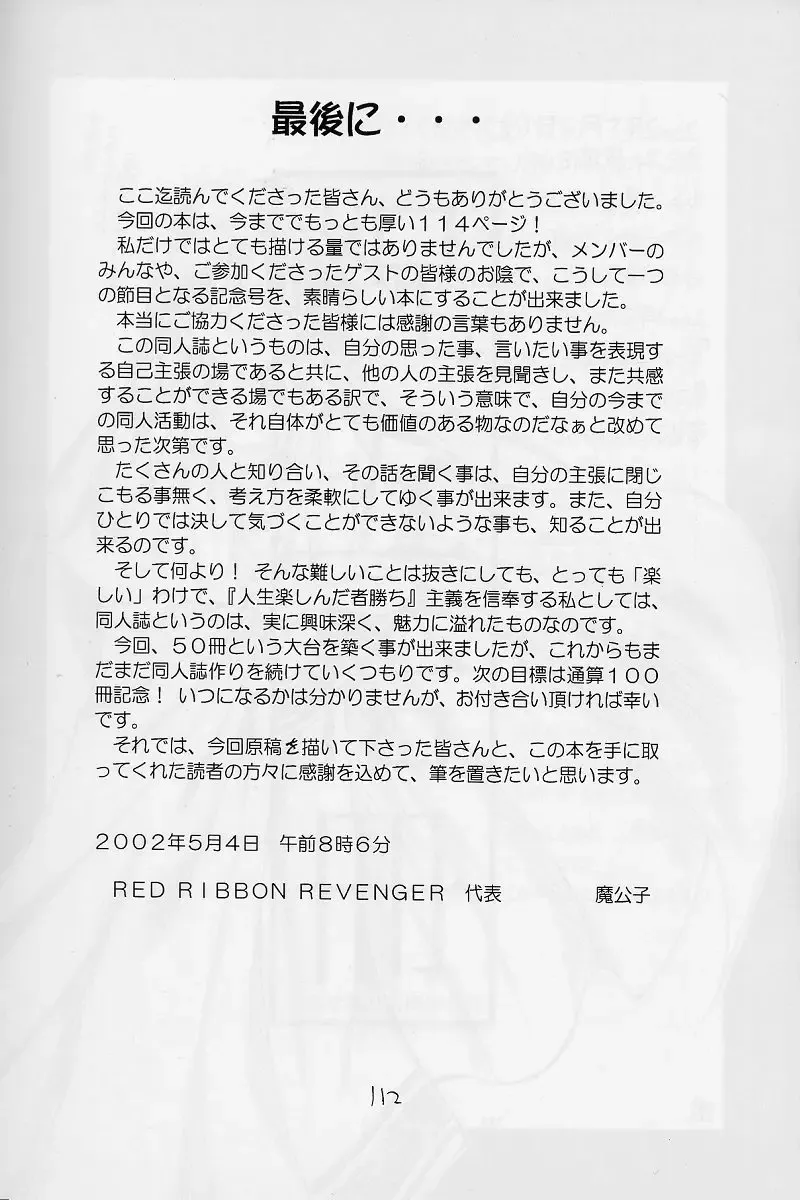 最後に・・・
ここ迄読んでくださった皆さん、どうもありがとうございました。
今回の本は、今まででもっとも厚い１１４ページ！
私だけではとても描ける量ではありませんでしたが、メンバーの
みんなや、ご参加くださったゲストの皆様のお陰で、こうして一つ
の節目となる記念号を、素晴らしい本にすることが出来ました。
本当にご協力くださった皆様には感謝の言葉もありません。
この同人誌というものは、自分の思った事、言いたい事を表現す
る自己主張の場であると共に、他の人の主張を見聞きし、また共感
することができる場でもある訳で、そういう意味で、自分の今まで
の同人活動は、それ自体がとても価値のある物なのだなぁと改めて
思った次第です。
たくさんの人と知り合い、その話を聞く事は、自分の主張に閉じ
こもる事無く、考え方を柔軟にしてゆく事が出来ます。また、自分
ひとりでは決して気づくことができないような事も、知ることが出
来るのです。
そして何より！ そんな難しいことは抜きにしても、とっても「楽
しい」わけで、『人生楽しんだ者勝ち』主義を信奉する私としては、
同人誌というのは、実に興味深く、魅力に溢れたものなのです。
今回、５０冊という大台を築く事が出来ましたが、これからもま
だまだ同人誌作りを続けていくつもりです。次の目標は通算１００
冊記念！ いつになるかは分かりませんが、お付き合い頂ければ幸い
です。
それでは、今回原稿を描いて下さった皆さんと、この本を手に取
ってくれた読者の方々に感謝を込めて、筆を置きたいと思います。
２００２年５月４日　午前８時６分
ＲＥＤ ＲＩＢＢＯＮ ＲＥＶＥＮＧＥＲ 代表　　　魔公子
112